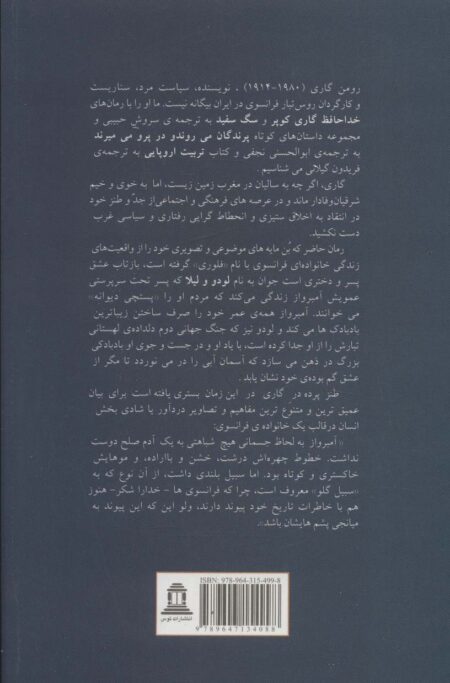 رومن گاری (۱۹۸۰-۱۹۱۴) ، نویسنده، سیاست مرد، سناریست
و کارگردان روس‌تبار فرانسوی در ایران بیگانه نیست. ما او را با رمان‌های
خداحافظ گاری کوپر و سگ سفید به ترجمه ی سروش حبیبی و
مجموعه داستان‌های کوتاه پرندگان می روندو در پرو می میرند
به ترجمه‌ی ابوالحسنی نجفی و کتاب تربیت اروپایی به ترجمه‌ی
فریدون گیلانی می شناسیم .
گاری، اگر چه به سالیان در مغرب زمین زیست، اما به خوی و خیم
شرقیان‌وفادار ماند و در عرصه های فرهنگی و اجتماعی‌از جدّ‌و طنز خود
در انتقاد به اخلاق ستیزی و انحطاط گرایی رفتاری و سیاسی غرب
دست نکشید.
رمان حاضر که بُن مایه های موضوعی و تصویری خود را از واقعیت‌های
زندگی خانواده‌ای فرانسوی با نام «فلوری» گرفته است، بازتاب عشق
پسر و دختری است جوان به نام لودو و لیلا که پسر تحت سرپرستی
عمویش آمبرواز زندگی می‌کند که مردم او را «پستچی دیوانه»
می خوانند. آمبرواز همه‌ی عمر خود را صرف ساختن زیباترین
بادبادک ها می کند و لودو نیز که جنگ جهانی دوم دلداده‌ی لهستانی
تبارش را از او جدا کرده است، با یاد او و در جست و جوی او بادبادکی
بزرگ در ذهن می سازد که آسمان آبی را در می نوردد تا مگر از
عشق گم بوده‌ی خود نشان یابد .
طنز پرده در گاری در این زمان بستری یافته است برای بیان
عمیق ترین و متنوع ترین مفاهیم و تصاویر دردآور یا شادی بخش
انسان درقالب یک خانواده ی فرانسوی:
« آمبرواز به لحاظ جسمانی هیچ شباهتی به یک آدم صلح دوست
نداشت. خطوط چهره‌اش درشت، خشن و بااراده، و موهایش
خاکستری و کوتاه بود. اما سبیل بلندی داشت، از آن نوع که به
«سبیل گلو» معروف است، چرا که فرانسوی ها - خدارا شکر- هنوز
هم با خاطرات تاریخ خود پیوند دارند، ولو این که این پیوند به
میانجی پشم هایشان باشد».
ISBN: 978-964-315-499-8
انتشارات توس
9789647134088